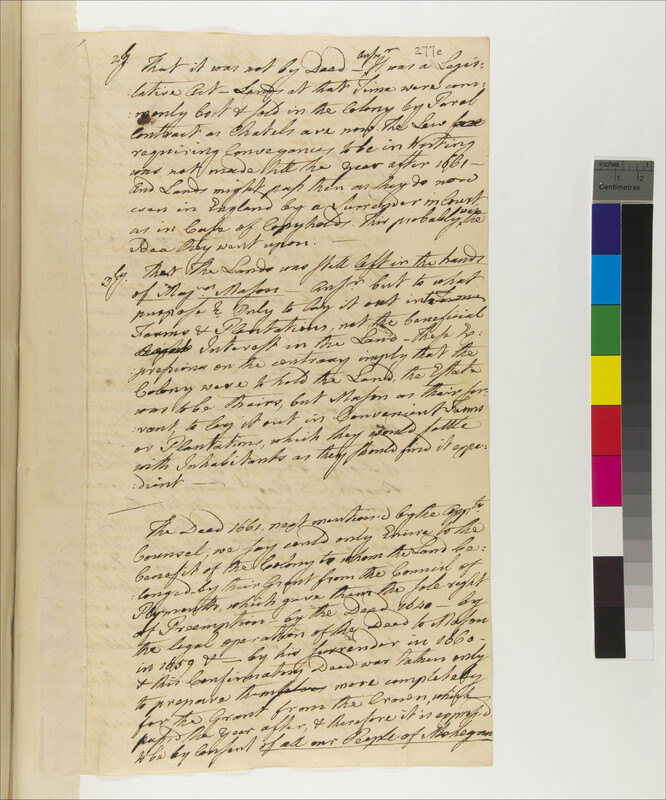 277e
2ly. That it was not by Deed – Ansr. It was a Legis:
:lative Act – Lands at that Time were com:
:monly Bot & sold in the Colony by Parol
Contract as Chatels are now. The Law
requiring Conveyances to be in Writing
was not made till the Year after 1661 –
And Lands might pass then as they do now
even in England by a Surrender in Court
as in Case of Copyholds. This probably was the
Idea they went upon. –
3ly. That The Lands was still left in the hands
of Majr. Mason – Ansr. but to what
purpose? Only to lay it out into
Farms & Plantations, not the beneficial
Interest in the Land – these Ex:
:pressions on the contrary imply that the
Colony were to hold the Land, the Estate
was to be theirs, but Mason as their ser:
vant, to lay it out in Convenient Farms
or Plantations, which they would settle
with Inhabitants as they should find it expe:
:dient –
The Deed 1661. next mention'd by the Appts.
Counsel, we say could only Enure to the
benefit of the Colony to whom the Land be:
:longed by their Grant from the Council of
Plymouth, which gave them the sole right
of Preemption – by the Deed 1640 – by
the legal operation of the Deed to Mason
in 1659 & – by his Surrender in 1660 –
& this Confirmatory Deed was taken only
to prepare more completely
for the Grant from the Crown, which
pass'd the Year after, & therefore it is express'd
to be by Consent of all our People of Mohegan
inches 1 2
Centimetres